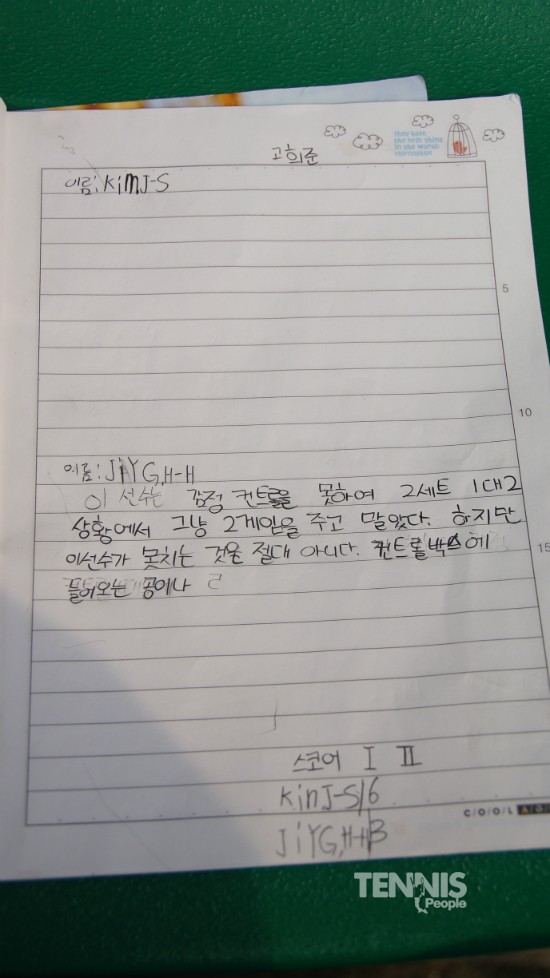 고희준
이름: KimJ-S
5
10
이름: JiYG,H-H
이 선수는 감정 컨트롤을 못하여 2세트 1대2
상황에서 그냥 2게임을 주고 말았다. 하지만
이선수가 못치는 것은 절대 아니다. 컨트롤 박스에
15
들어오는 공이나
스코어 I II
KinJ-S/6
JiYG,H-H/3
C/O/O/L
TENNIS
People